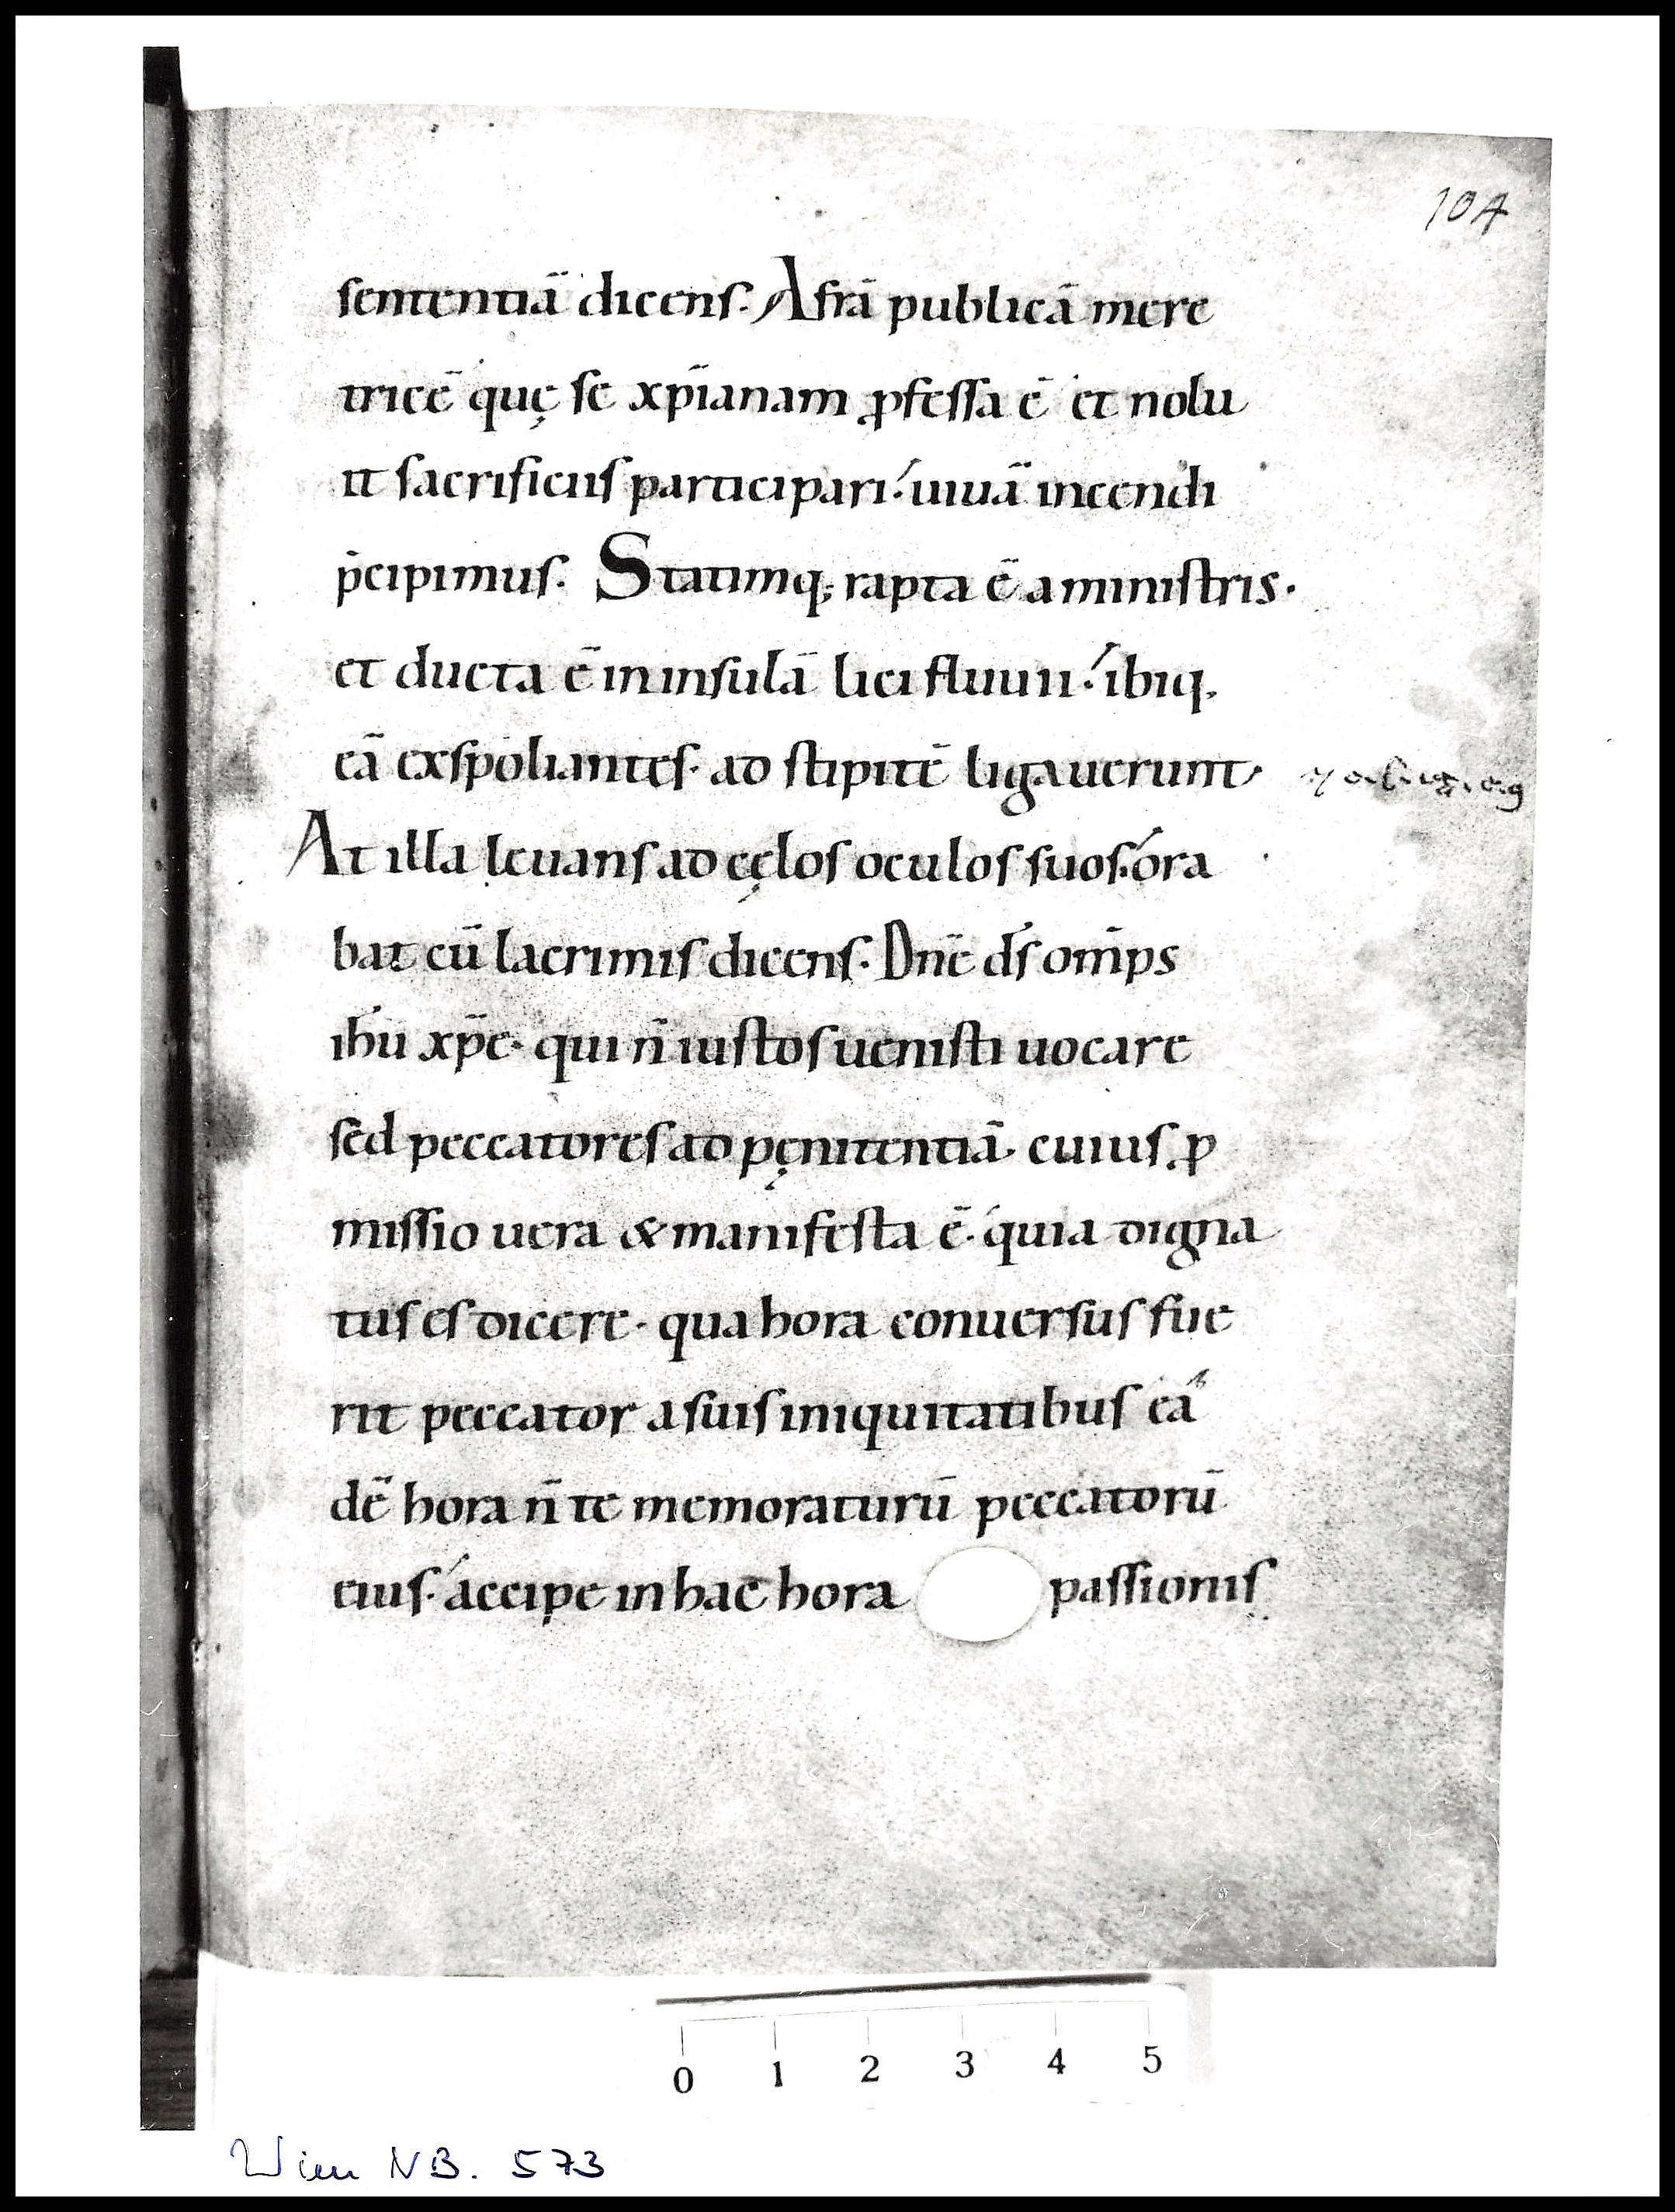 104
sententiā dicens. Afrā publicā mere
tricē quę se xp̄ianam ꝓfessa ē et nolu
it sacrificiis participari. uiuā incendi
p̄cipimus. Statimq; rapta ē a ministris.
et ducta ē in insulā lici fluuii. ibiq,
eā exspoliantes. ad stipitē ligauerunt.
At illa leuans ad cęlos oculos suos. ora
bat cū lacrimis dicens. Dnē d̄s om̄ps
ih̄u xp̄e. qui n̄ iustos uenisti uocare
sed peccatores ad pęnitentiā. cuius ꝓ
missio uera & manifesta ē. quia digna
tus es dicere. qua hora conuersus fue
rit peccator a suis iniquitatibus eā
dē hora n̄ te memoraturū peccatorū
eius. accipe in hac hora passionis
0 1 2 3 4 5
Wien NB. 573